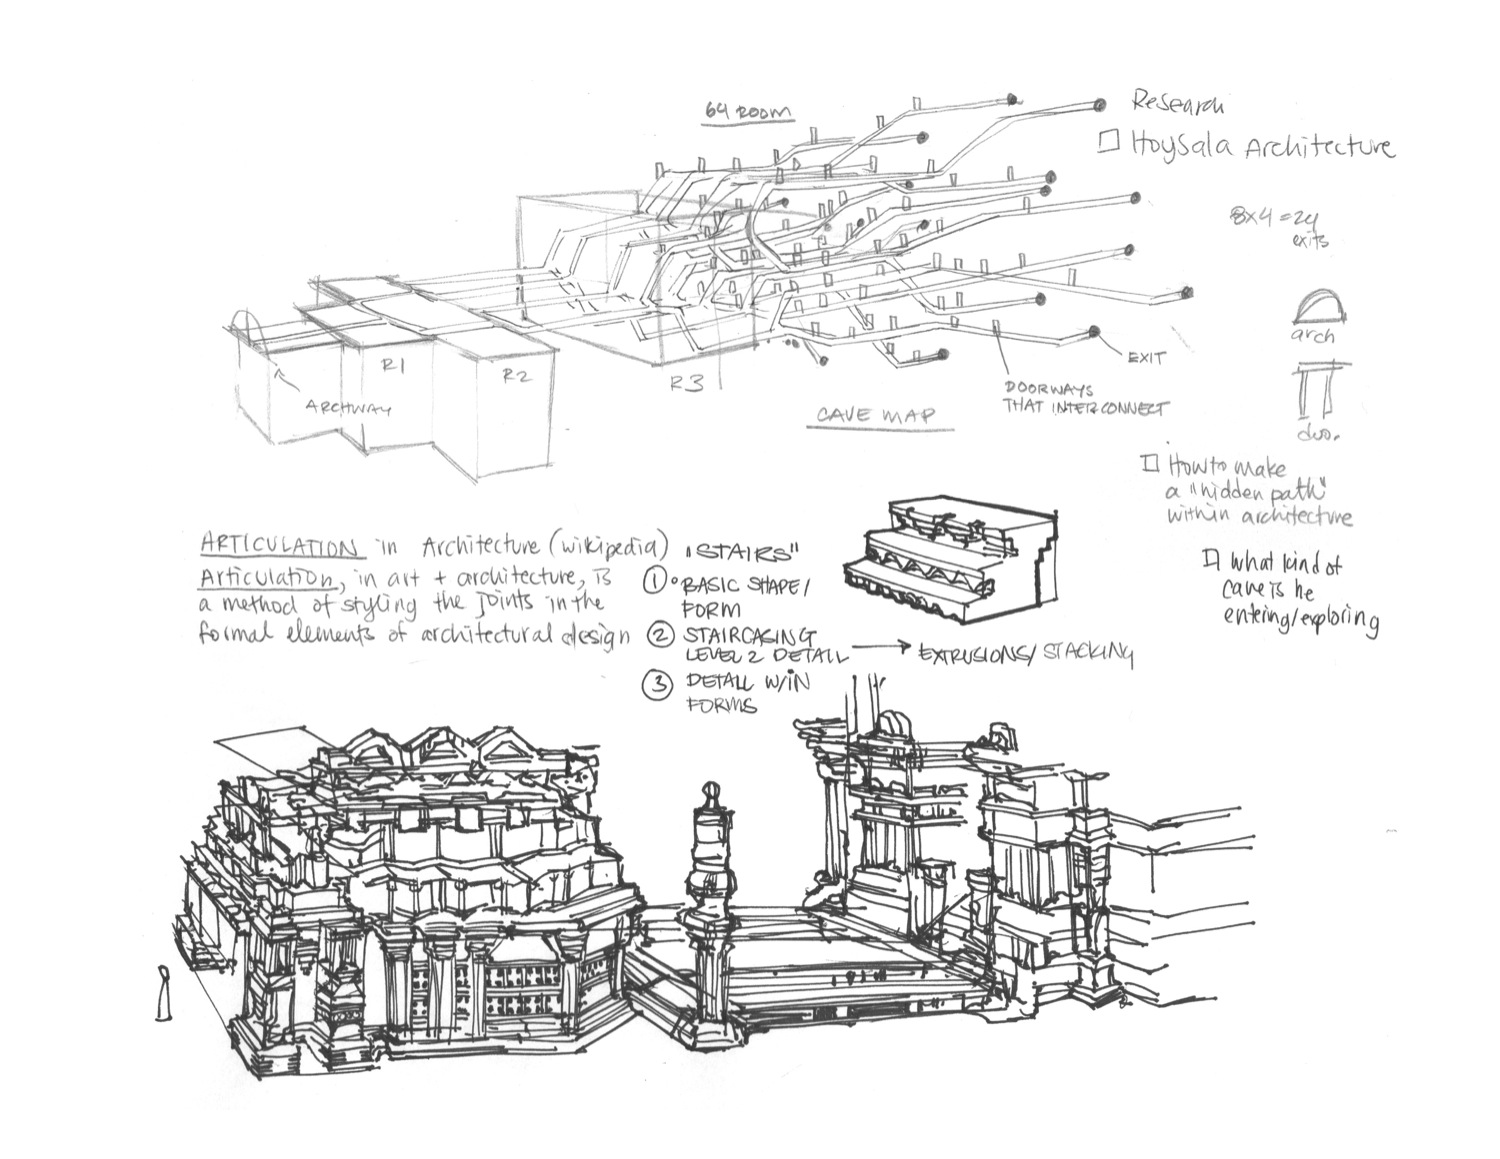 64 ROOM
Research
☐ Hoysala Architecture
8x4 = 24
exits
arch
door
R1
R2
R3
ARCHWAY
EXIT
DOORWAYS
THAT INTERCONNECT
CAVE MAP
☐ How to make
a "hidden path"
within architecture
☐ What kind of
cave is he
entering/exploring
ARTICULATION in Architecture (wikipedia)
Articulation, in art + architecture, is
a method of styling the joints in the
formal elements of architectural design
"STAIRS"
① • BASIC SHAPE/
FORM
② STAIRCASING
LEVEL 2 DETAIL → EXTRUSIONS/STACKING
③ DETAIL W/IN
FORMS